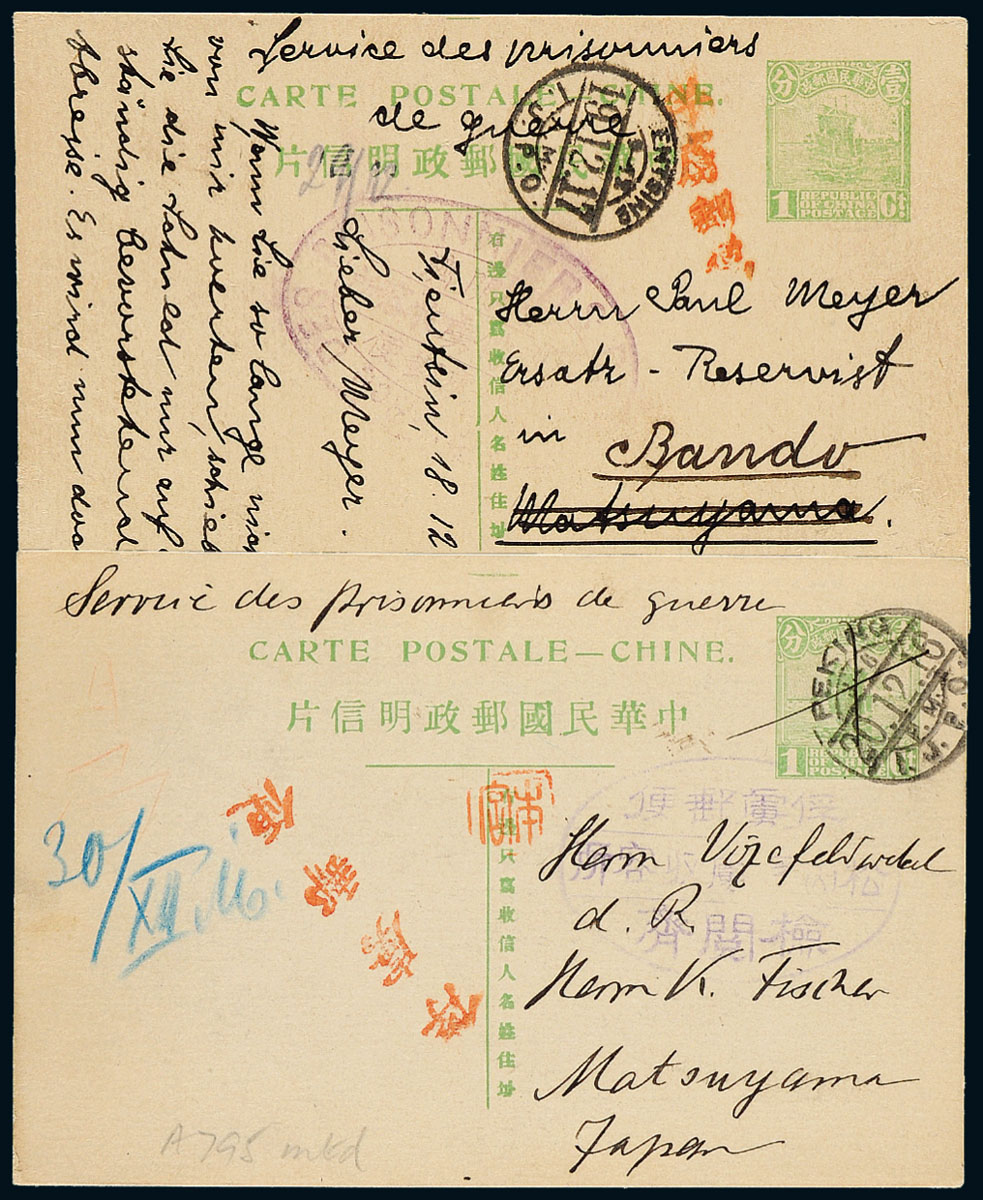 Service des prisonniers
de guerre
CARTE POSTALE—CHINE.
中華民國郵政明信片
中華民國郵政
壹
分
1
REPUBLIC
OF CHINA
POSTAGE
Ct
TIENTSING
19.12.17
I.J.P.O.
俘虜郵便
PRISONNIERS
右邊只寫收信人名姓住址
Herrn Paul Meyer
Ersatz - Reservist
in Bando
Matsuyama.
Tientsin, 18. 12
Lieber Meyer.
Wenn Sie so lange
von mir hörten, schieb
Sie die Schuld nur auf
ständig bevorstehend
Abreise. Es wird nun
Service des prisonniers de guerre
CARTE POSTALE—CHINE.
中華民國郵政明信片
分
1
REPUBLIC
OF CHINA
POSTAGE
Ct
PEKING
20.12.
I.J.P.O.
俘虜郵便
俘虜郵便
松山俘虜收容所
檢閱濟
右邊只寫收信人名姓住址
30/XII.16.
Herrn Vizefeldwebel
d. R.
Herrn K. Fischer
Matsuyama
Japan
A795 mkd